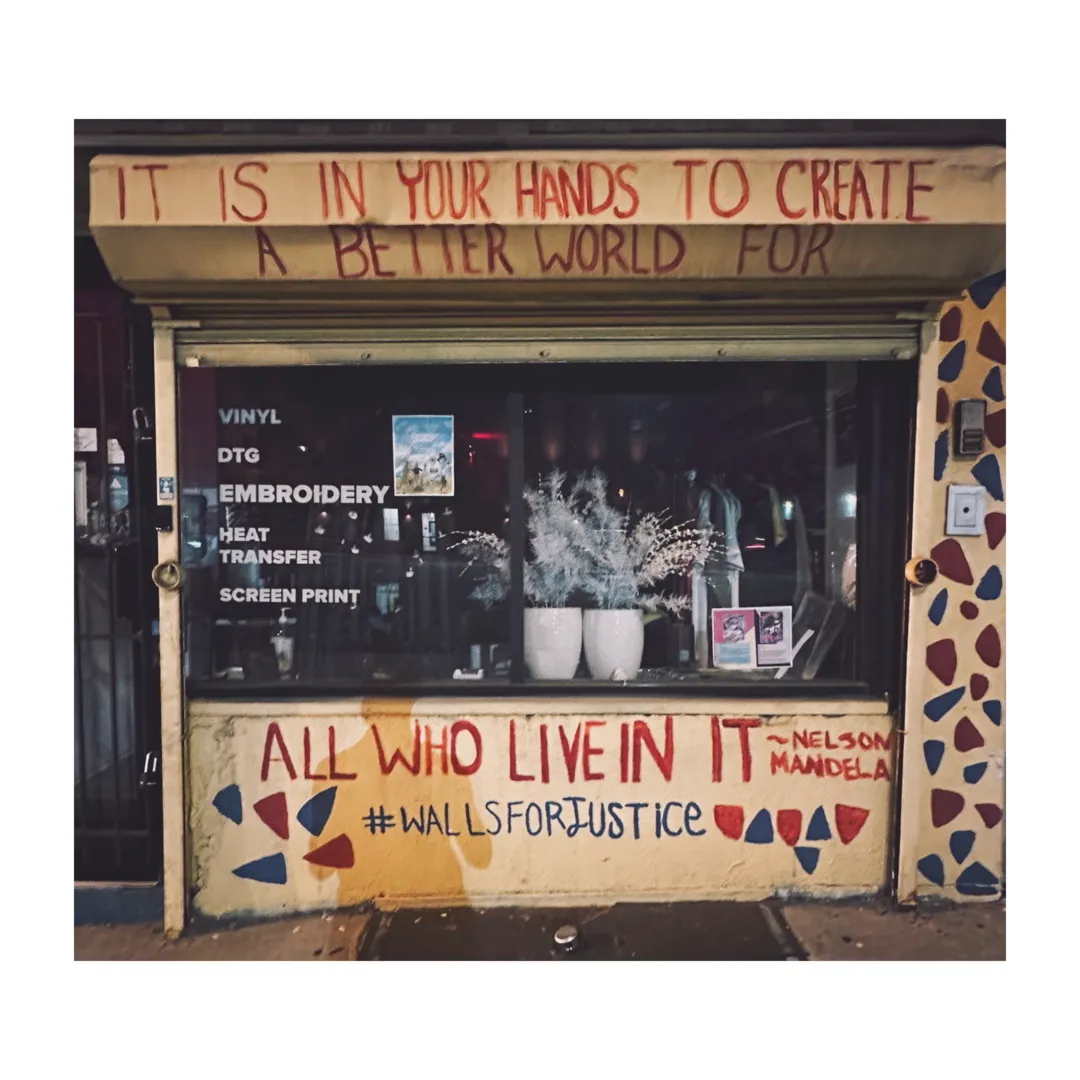 IT IS IN YOUR HANDS TO CREATE
A BETTER WORLD FOR
VINYL
DTG
EMBROIDERY
HEAT
TRANSFER
SCREEN PRINT
ALL WHO LIVE IN IT
~NELSON
MANDELA
#WALLSFORJUSTICE